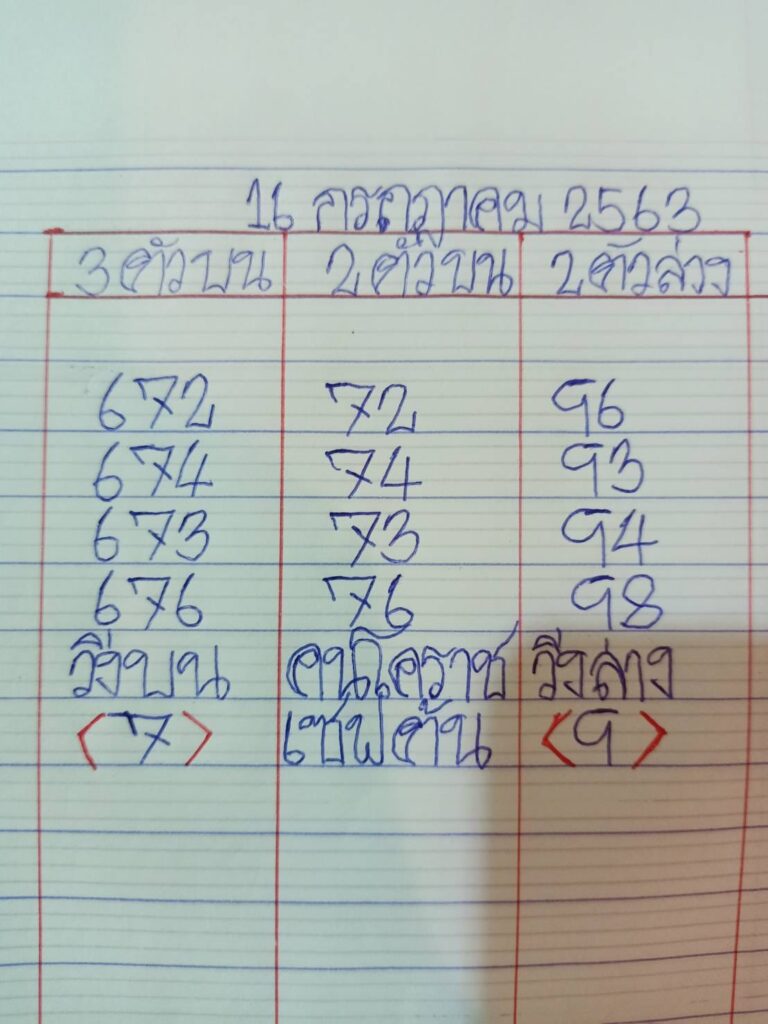 16 กรกฎาคม 2563
3ตัวบน 2ตัวบน 2ตัวล่าง
672 72 96
674 74 93
673 73 94
676 76 98
วิ่งบน คนโคราช วิ่งล่าง
<7> เซฟตัน <9>